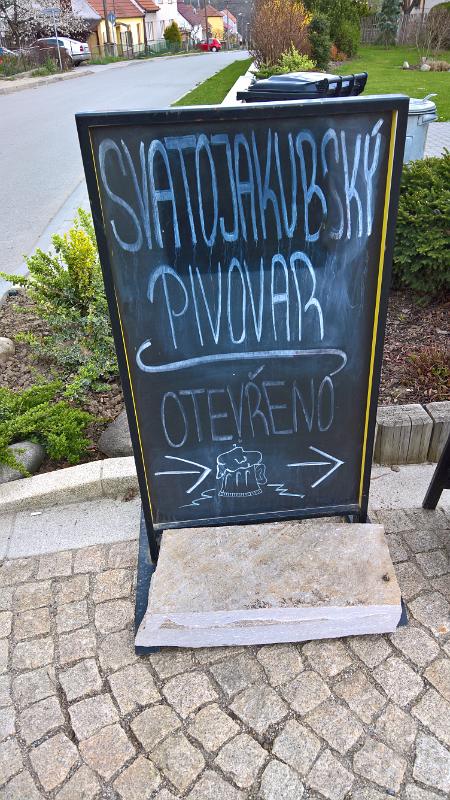 SVATOJAKUBSKÝ
PIVOVAR
OTEVŘENO